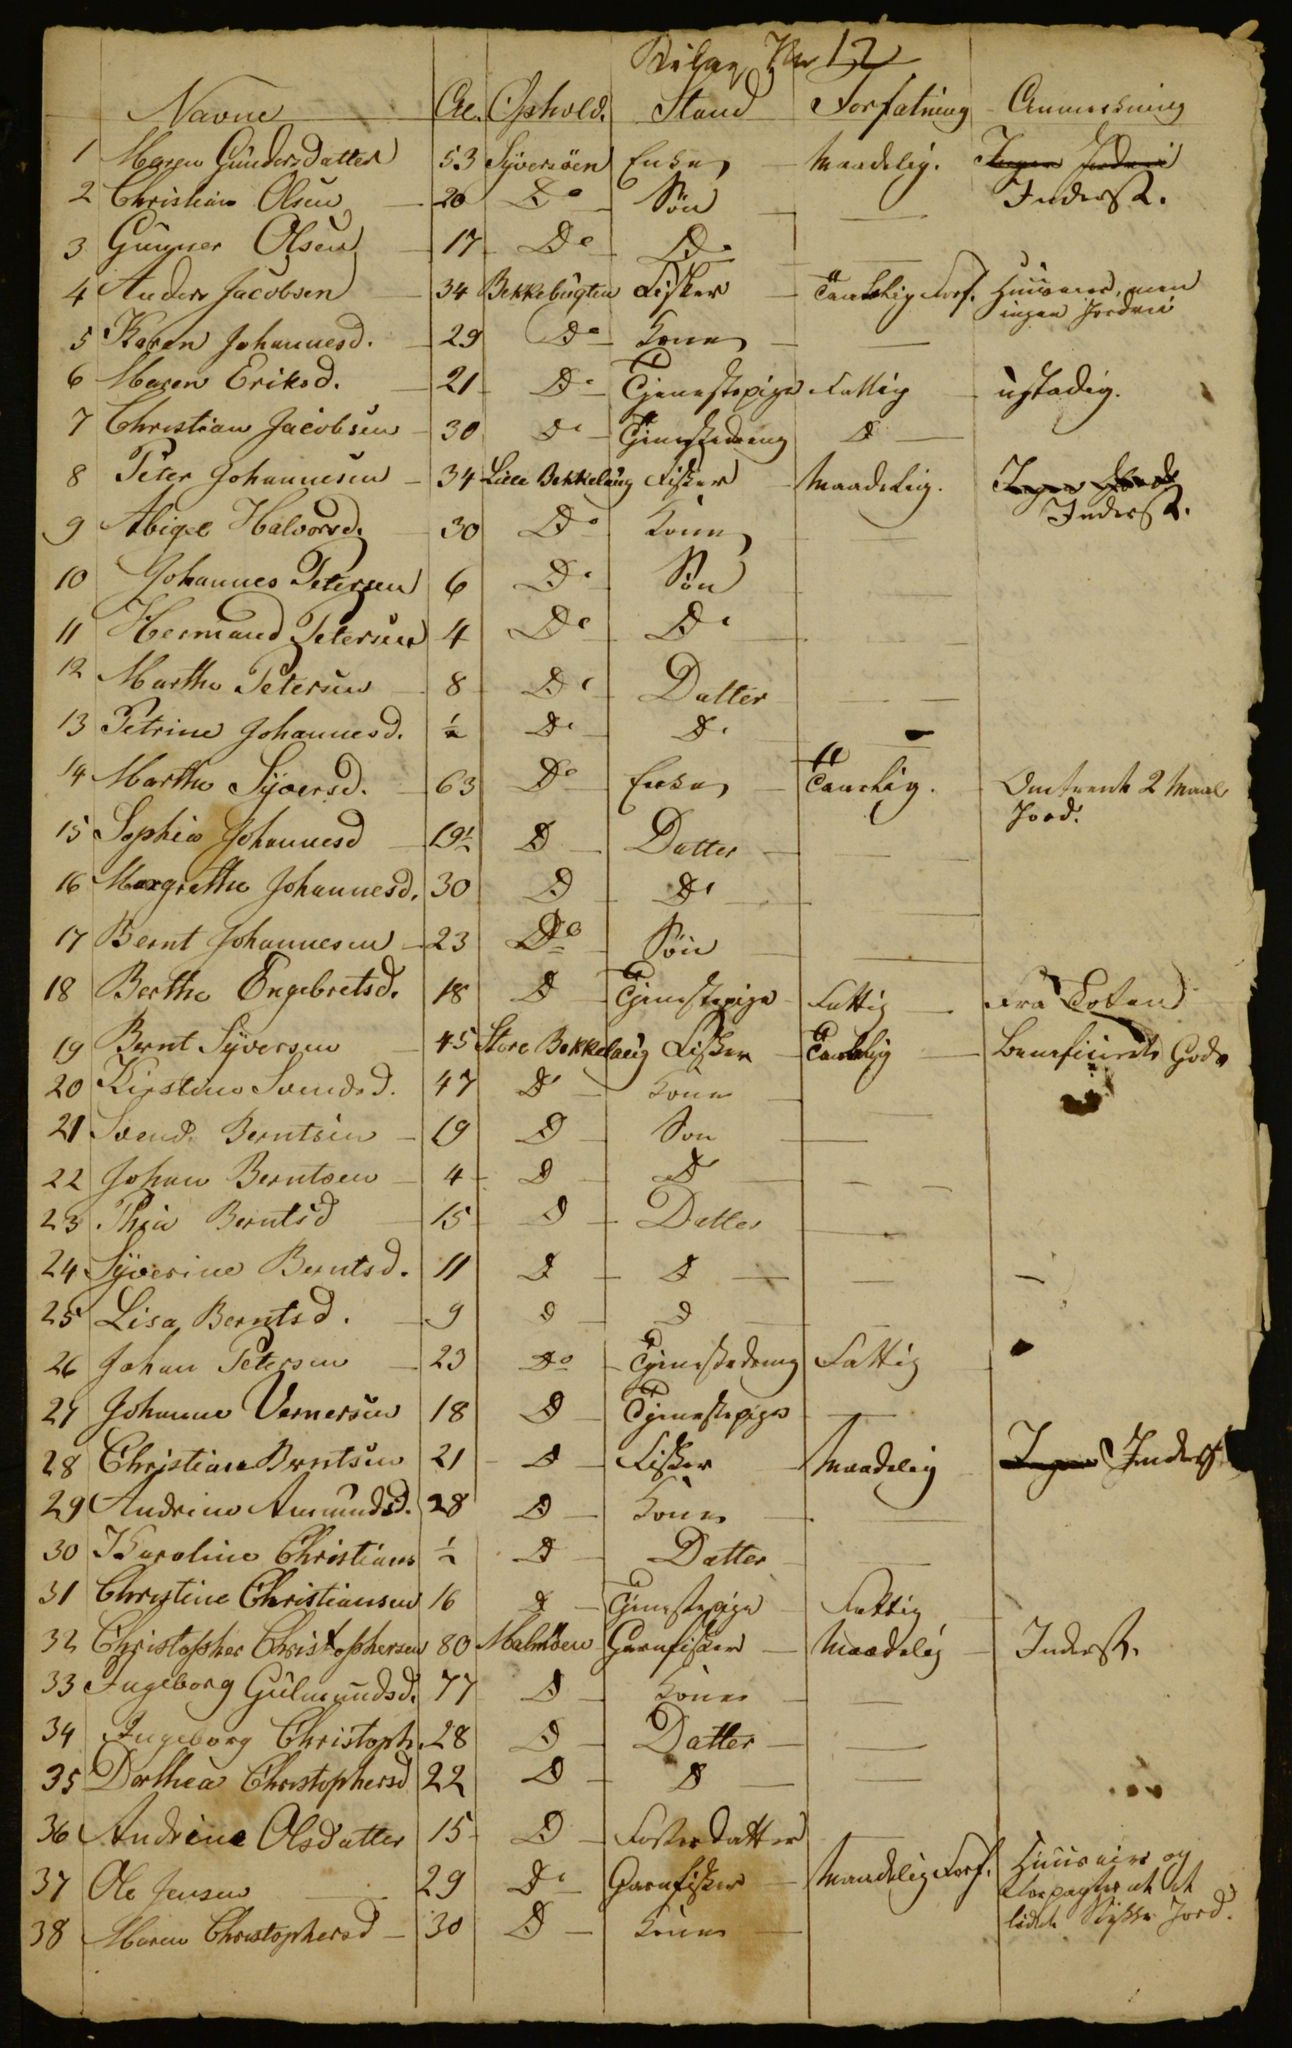 Bilag No 12
Navne Al. Ophold. Stand Forfatning Anmerkning
1 Maren Gundersdatter 53 Syversöen Enke Maadelig. Ingen Jordvei
2 Christian Olsen 26 Do Sön Inderst.
3 Gunner Olsen 17 Do Do
4 Anders Jacobsen 34 Bekkebugten Fisker Taalelig Forf. Huuseier, men
ingen Jordvei
5 Karen Johannesd. 29 Do Kone
6 Maren Eriksd. 21 Do Tjenestepige Fattig ustadig.
7 Christian Jacobsen 30 Do Tjenestedreng D
8 Peter Johannesen 34 Lille Bekkelaug Fisker Maadelig. Ingen
9 Abigel Halvorsd. 30 Do Kone Inderst.
10 Johannes Petersen 6 Do Sön
11 Hermand Petersen 4 Do Do
12 Marthe Petersen 8 Do Datter
13 Petrine Johannesd. ½ Do Do
14 Marthe Syversd. 63 Do Enke Taalelig. Omtrent 2 Maal
Jord.
15 Sophia Johannesd 19½ D Datter
16 Margrethe Johannesd. 30 D Do
17 Bernt Johannesen 23 Do Sön
18 Berthe Engebretsd. 18 D Tjenestepige Fattig Fra Toten
19 Bernt Syversen 45 Store Bekkelaug Fisker Taalelig Beneficeret Gods
20 Kirstine Svendsd. 47 D Kone
21 Svend Berntsen 19 D Son
22 Johan Berntsen 4 D D
23 Thia Berntsd 15 D Datter
24 Syverine Berntsd. 11 D D
25 Lisa Berntsd. 9 D D
26 Johan Petersen 23 Do Tjenestedreng Fattig
27 Johanne Vernersen 18 D Tjenestepige
28 Christian Berntsen 21 D Fisker Maadelig Ingen Inderst
29 Andrine Amundsd. 28 D Kone
30 Karoline Christians ½ D Datter
31 Christine Christiansen 16 D Tjenestepige Fattig
32 Christopher Christophersen 80 Malmöen Garnfisker Maadelig Inderst.
33 Ingeborg Gulmundsd. 77 D Kone
34 Ingeborg Christoph. 28 D Datter
35 Dorthea Christophersd 22 D D
36 Andrine Olsdatter 15 D Fosterdatter
37 Ole Jensen 29 Do Garnfisker Maadelig Forf. Huuseier og
Forpagter af et
38 Maren Christophersd 30 D Kone lidet Stykke Jord.